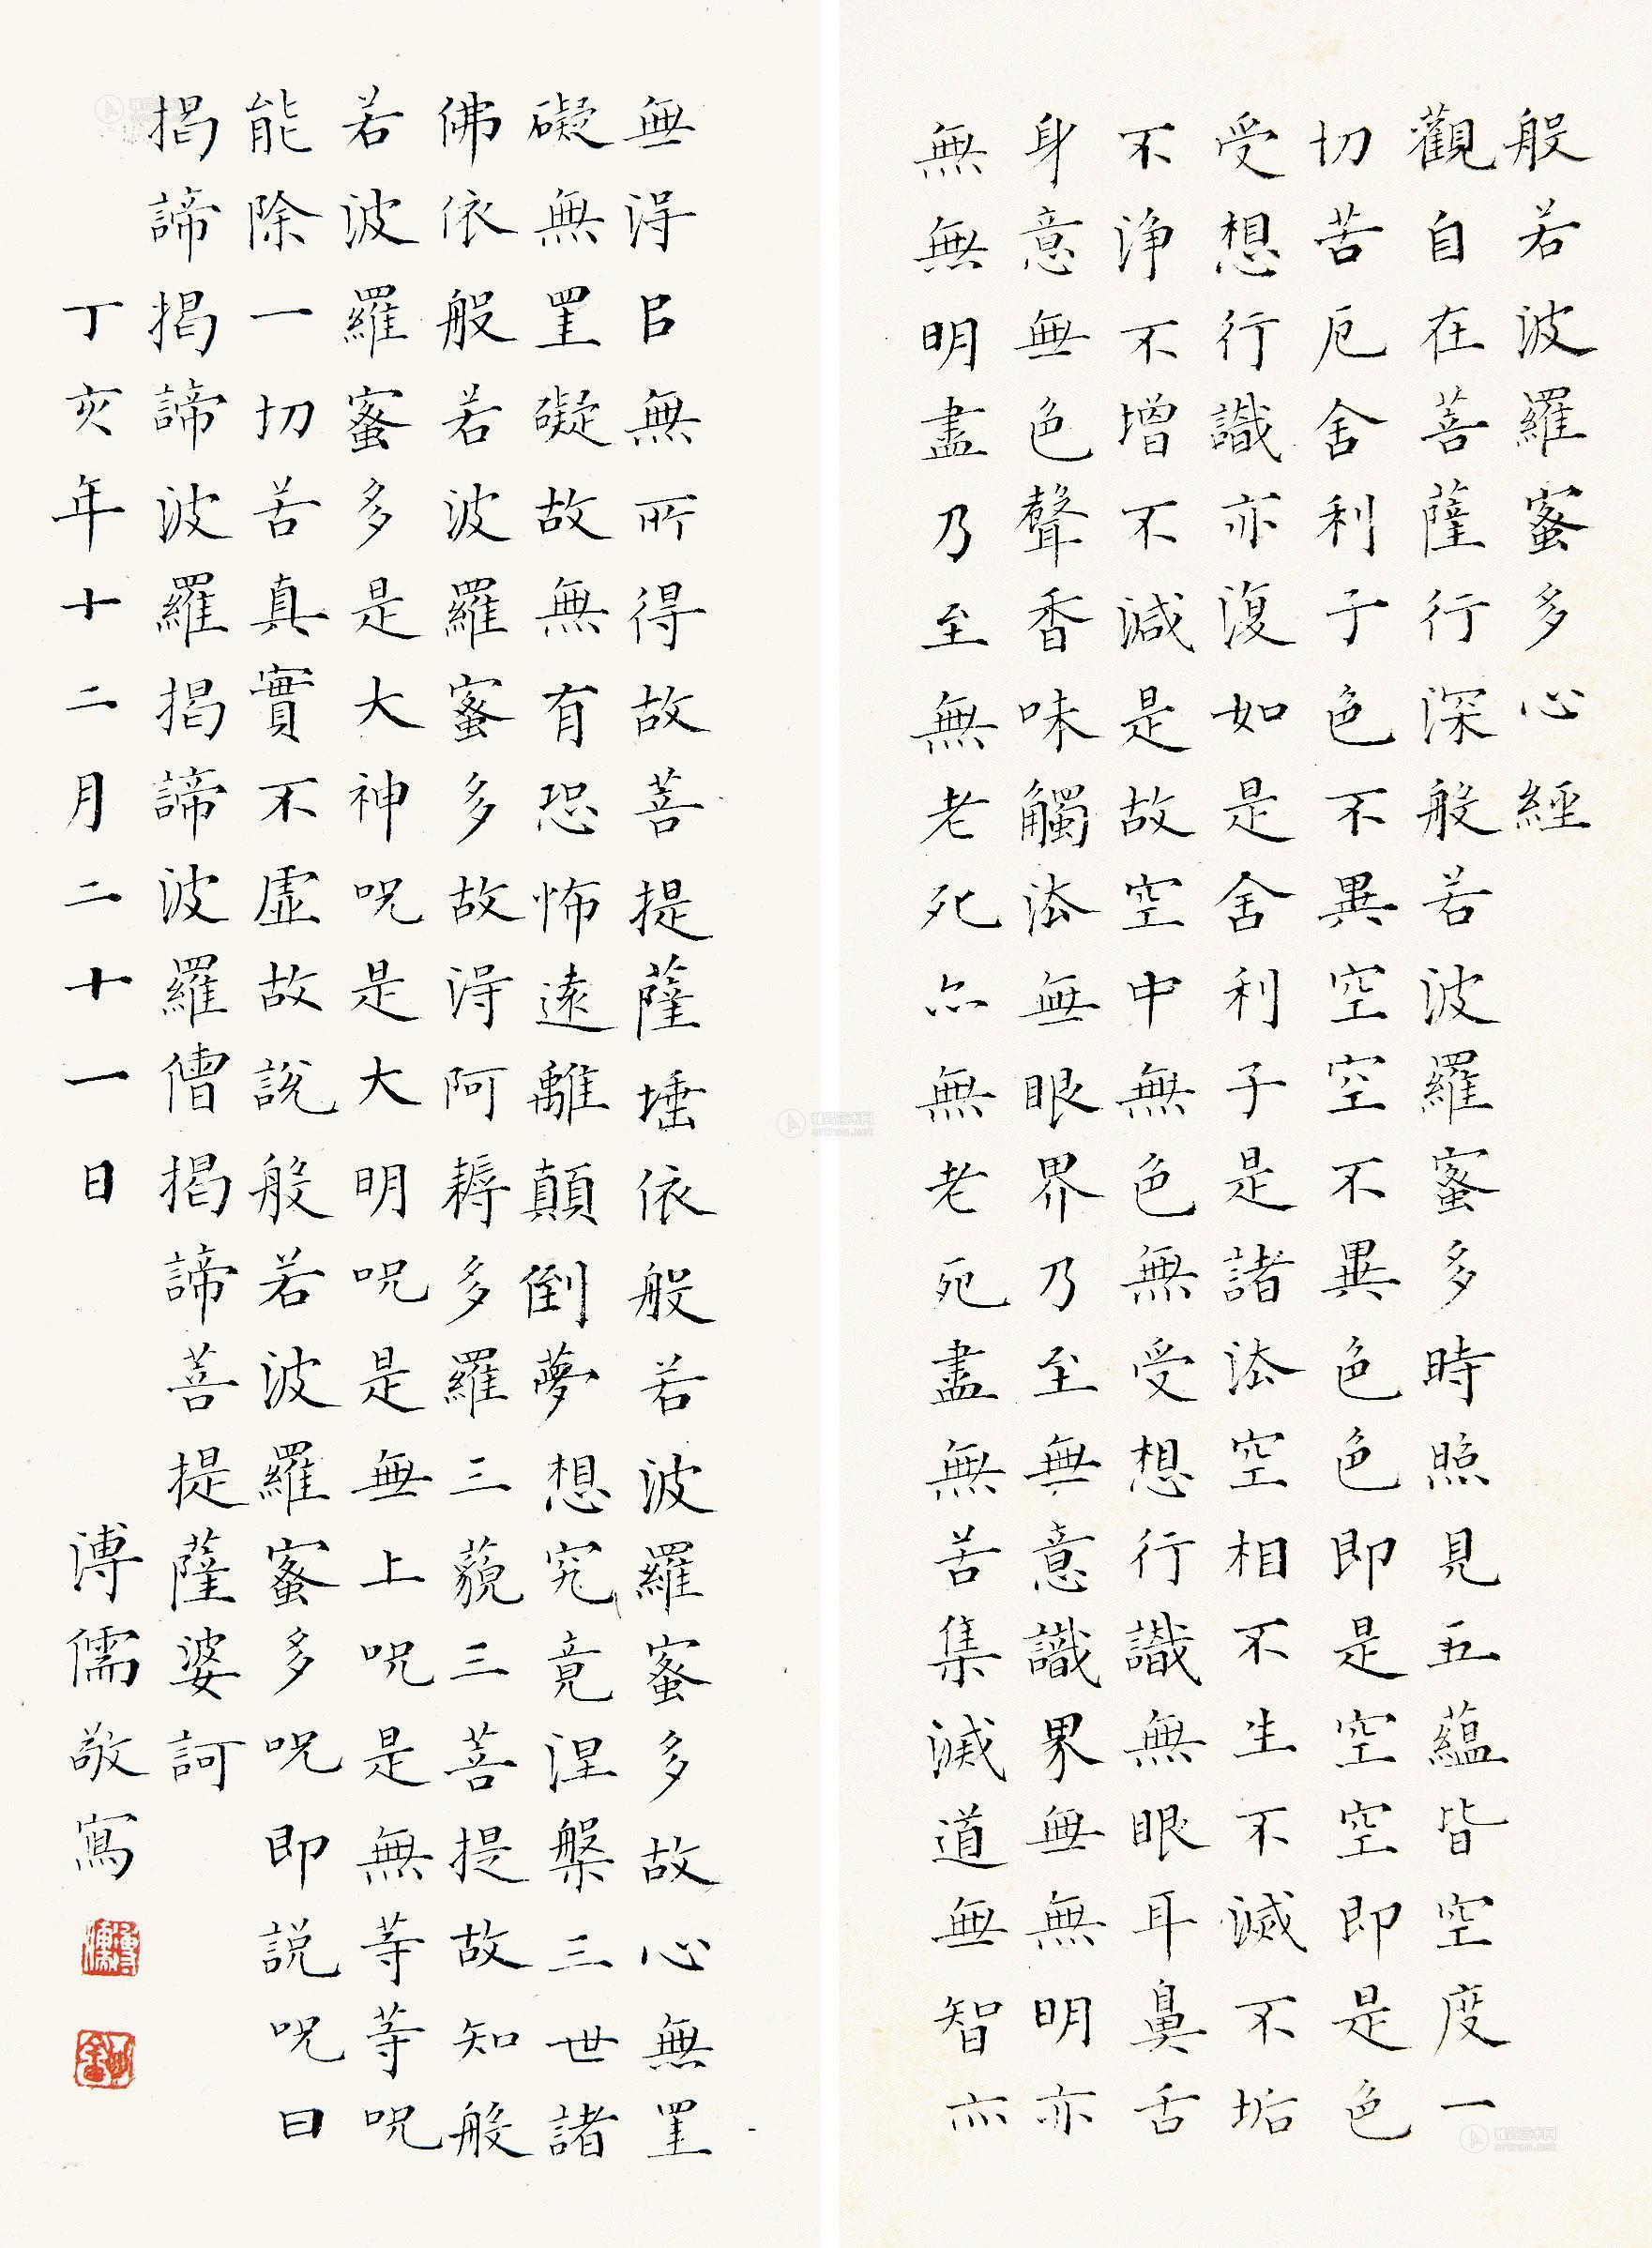 般若波羅蜜多心經
觀自在菩薩行深般若波羅蜜多時照見五蘊皆空度一
切苦厄舍利子色不異空空不異色色即是空空即是色
受想行識亦復如是舍利子是諸法空相不生不滅不垢
不淨不增不減是故空中無色無受想行識無眼耳鼻舌
身意無色聲香味觸法無眼界乃至無意識界無無明亦
無無明盡乃至無老死亦無老死盡無苦集滅道無智亦
無得㠯無所得故菩提薩埵依般若波羅蜜多故心無罣
礙無罣礙故無有恐怖遠離顛倒夢想究竟涅槃三世諸
佛依般若波羅蜜多故得阿耨多羅三藐三菩提故知般
若波羅蜜多是大神呪是大明呪是無上呪是無等等呪
能除一切苦真實不虛故說般若波羅蜜多呪即說呪曰
揭諦揭諦波羅揭諦波羅僧揭諦菩提薩婆訶
丁亥年十二月二十一日 溥儒敬寫
溥儒
雅昌艺术网
artron.net